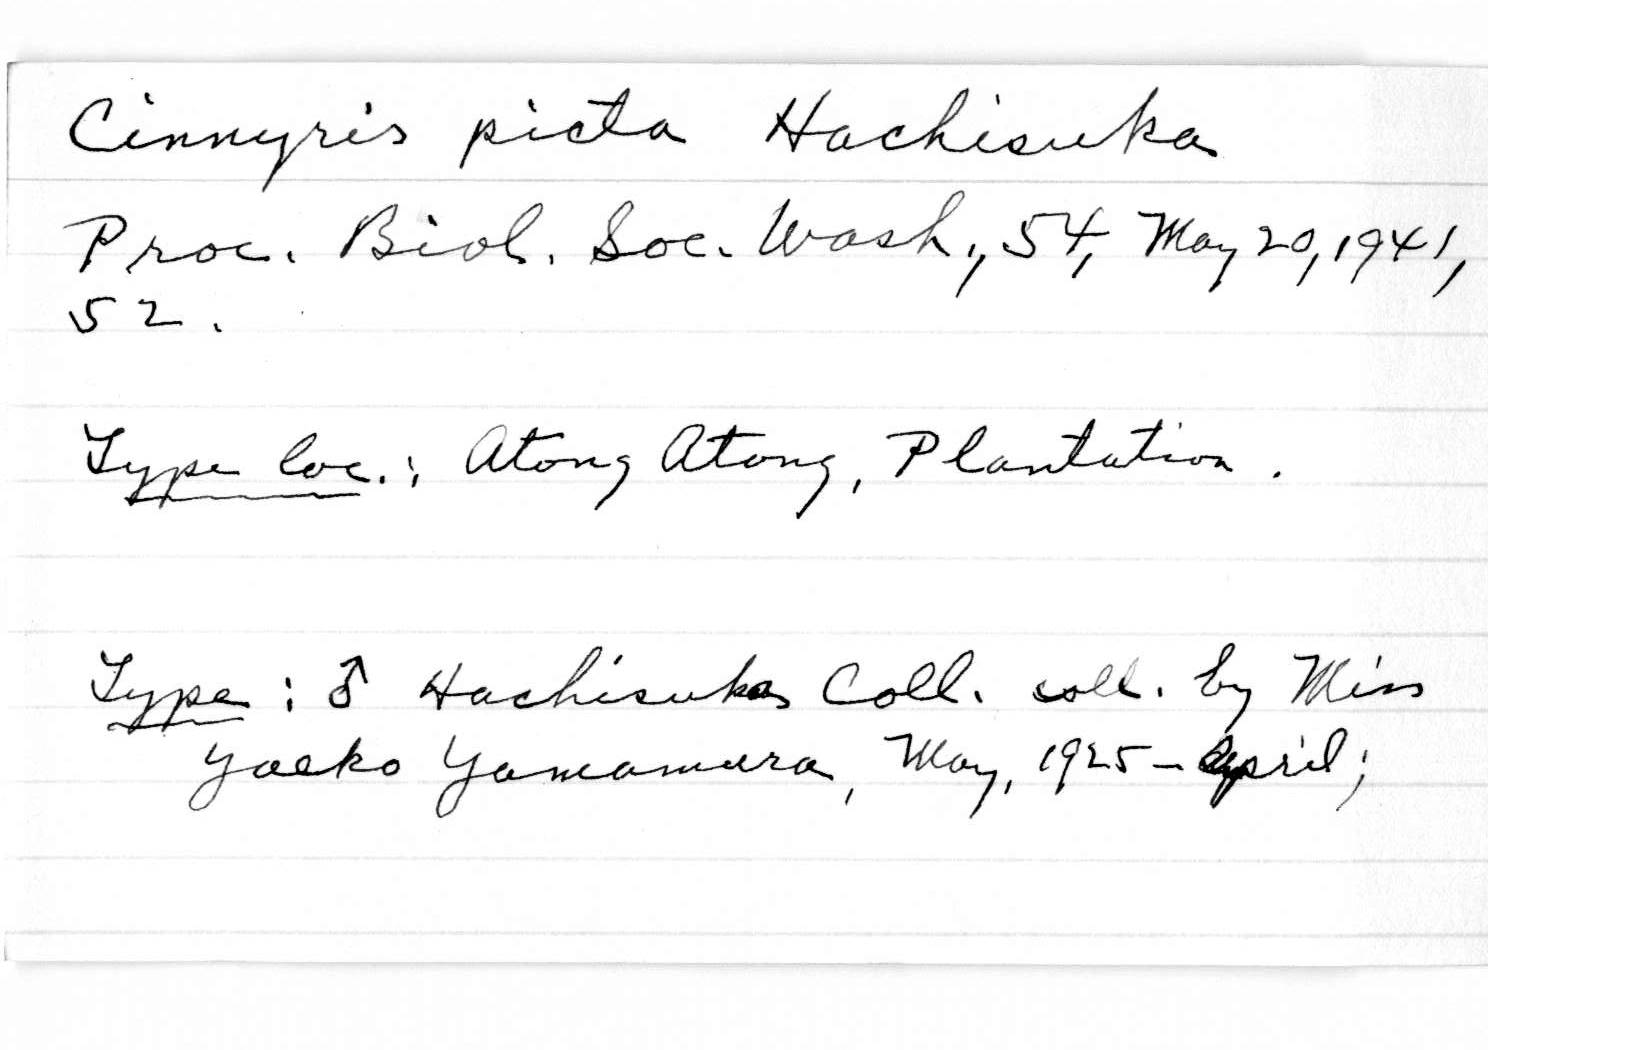 Cinnyris picta Hachisuka
Proc. Biol. Soc. Wash., 54, May 20, 1941,
52.
Type loc.: Atong Atong, Plantation.
Type: ♂ Hachisuka Coll. coll. by Miss
Yaeko Yamamura, May, 1925 - April;